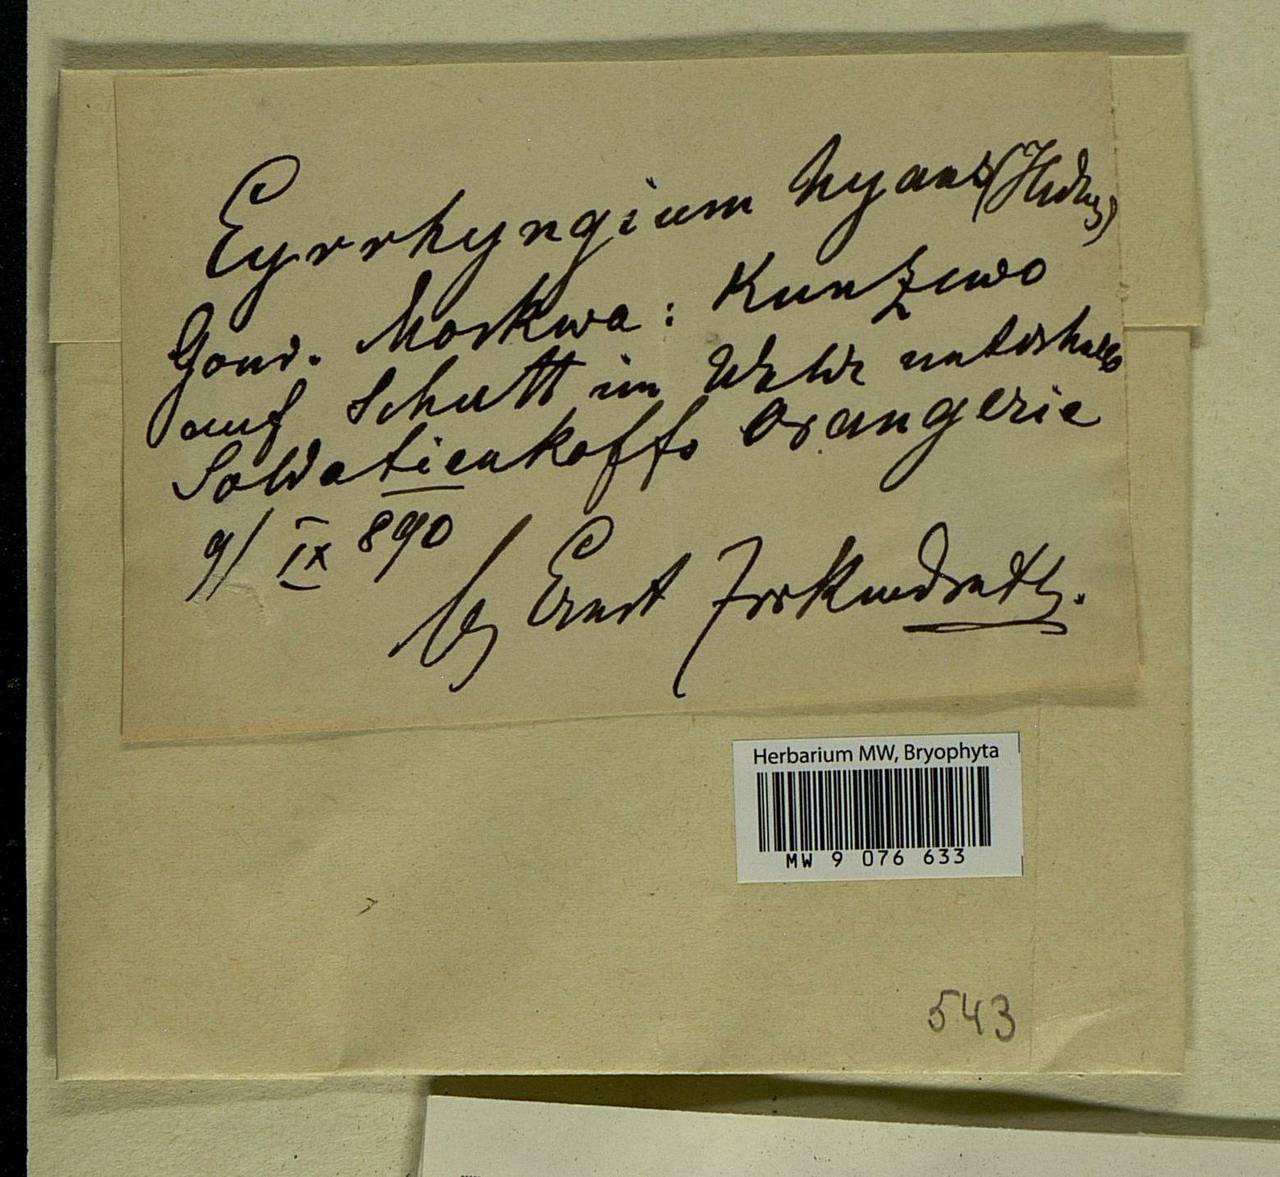 Eyrrhyngium hyans (Hedw.)
Gouv. Moskwa: Kunzewo
auf Schutt im Walde unterhalb
Soldatienkoffs Orangerie
9/IX 890
lg Ernst Zickendrath.
Herbarium MW, Bryophyta
MW 9 076 633
543